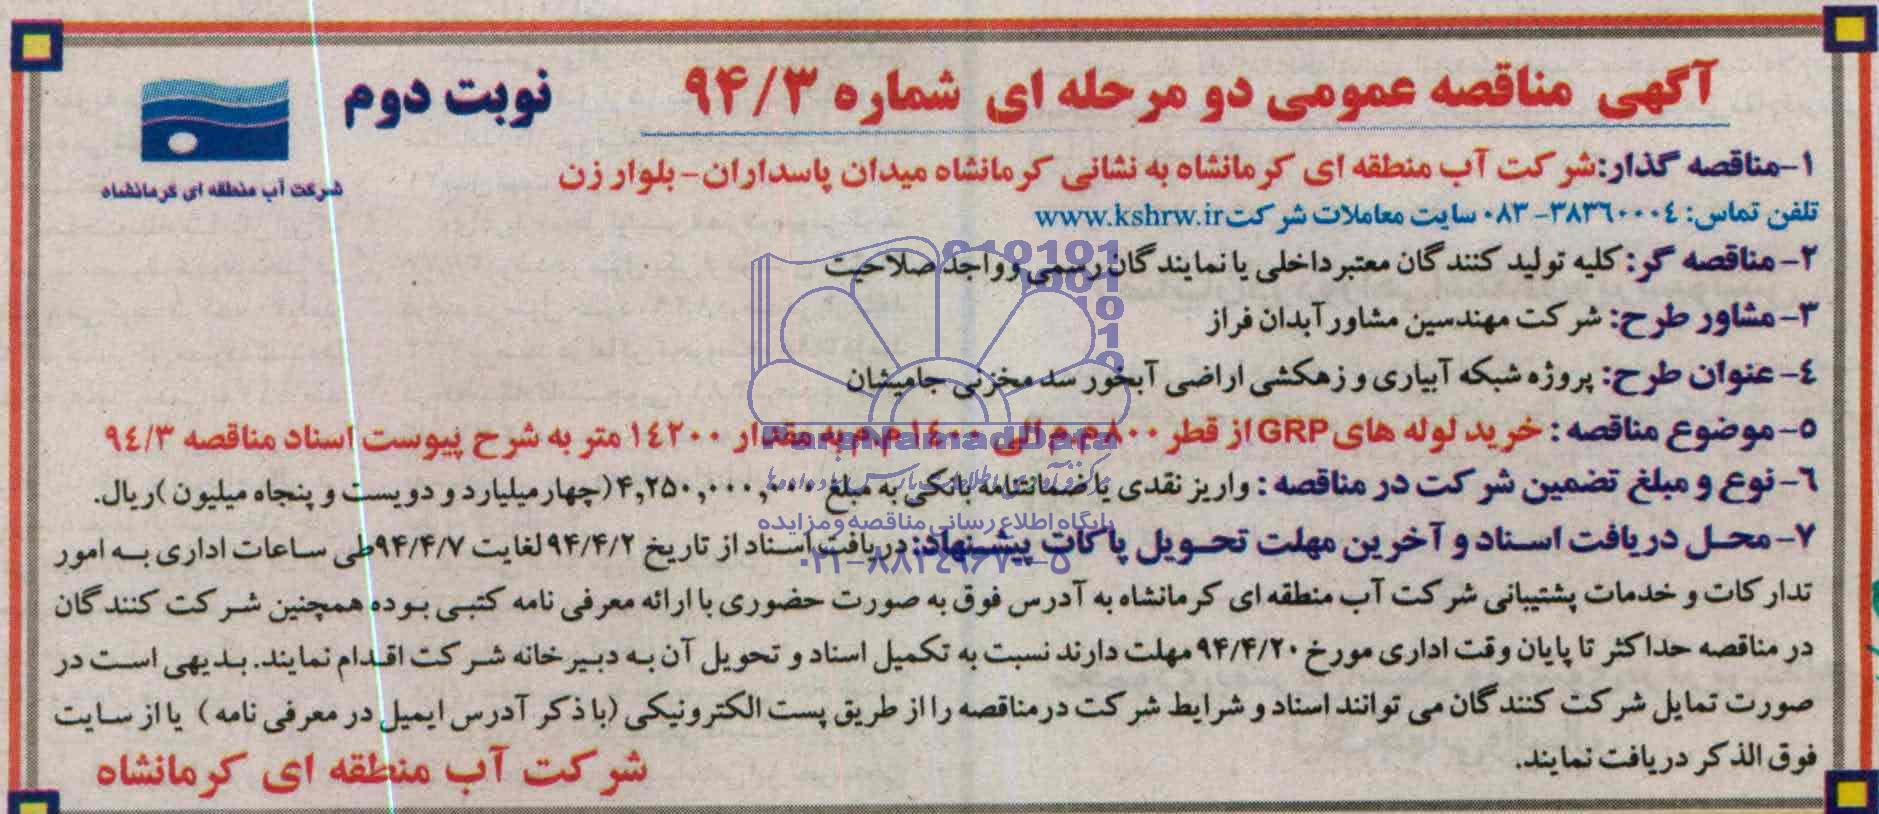 آگهی مناقصه عمومی دو مرحله ای شماره ۹۴/۳
نوبت دوم
شرکت آب منطقه ای کرمانشاه
۱-مناقصه گذار:شرکت آب منطقه ای کرمانشاه به نشانی کرمانشاه میدان پاسداران-بلوار زن
تلفن تماس: ۳۸۳٦۰۰۰٤-۰۸۳ سایت معاملات شرکت www.kshrw.ir
۲-مناقصه گر: کلیه تولید کنندگان معتبر داخلی یا نمایندگان رسمی و واجد صلاحیت
۳-مشاور طرح: شرکت مهندسین مشاور آبدان فراز
٤-عنوان طرح: پروژه شبکه آبیاری و زهکشی اراضی آبخور سد مخزنی جامیشان
۵-موضوع مناقصه: خرید لوله های GRP از قطر ۸۰۰م.م الی ۱٤۰۰م.م به مقدار ۱٤۲۰۰ متر به شرح پیوست اسناد مناقصه ۹٤/۳
٦-نوع و مبلغ تضمین شرکت در مناقصه: واریز نقدی یا ضمانتنامه بانکی به مبلغ ۴,۲۵۰,۰۰۰,۰۰۰(چهار میلیارد و دویست و پنجاه میلیون)ریال.
۷-محل دریافت اسناد و آخرین مهلت تحویل پاکات پیشنهاد: دریافت اسناد از تاریخ ۹۴/۴/۲ لغایت ۹۴/۴/۷طی ساعات اداری به امور
تدارکات و خدمات پشتیبانی شرکت آب منطقه ای کرمانشاه به آدرس فوق به صورت حضوری با ارائه معرفی نامه کتبی بوده همچنین شرکت کنندگان
در مناقصه حداکثر تا پایان وقت اداری مورخ ۹۴/۴/۲۰ مهلت دارند نسبت به تکمیل اسناد و تحویل آن به دبیرخانه شرکت اقدام نمایند. بدیهی است در
صورت تمایل شرکت کنندگان می توانند اسناد و شرایط شرکت در مناقصه را از طریق پست الکترونیکی (با ذکر آدرس ایمیل در معرفی نامه) یا از سایت
فوق الذکر دریافت نمایند.
شرکت آب منطقه ای کرمانشاه
ParsNamadData
پایگاه اطلاع رسانی مناقصه و مزایده
۰۲۱-۸۸۳٤۹٦۷۰-۵